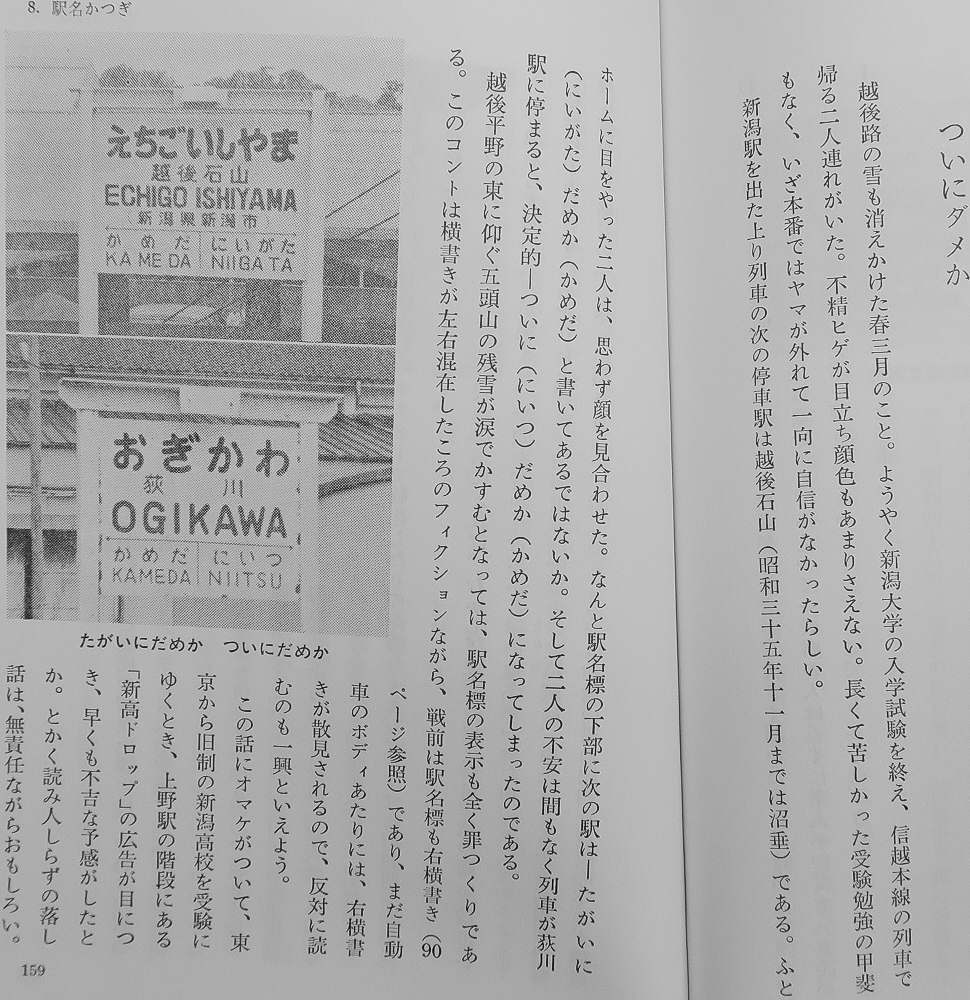 ついにダメか
越後路の雪も消えかけた春三月のこと。ようやく新潟大学の入学試験を終え、信越本線の列車で
帰る二人連れがいた。不精ヒゲが目立ち顔色もあまりさえない。長くて苦しかった受験勉強の甲斐
もなく、いざ本番ではヤマが外れて一向に自信がなかったらしい。
新潟駅を出た上り列車の次の停車駅は越後石山（昭和三十五年十一月までは沼垂）である。ふと
8. 駅名かつぎ
ホームに目をやった二人は、思わず顔を見合わせた。なんと駅名標の下部に次の駅は—たがいに
（にいがた）だめか（かめだ）と書いてあるではないか。そして二人の不安は間もなく列車が荻川
駅に停まると、決定的—ついに（にいつ）だめか（かめだ）になってしまったのである。
越後平野の東に仰ぐ五頭山の残雪が涙でかすむとなっては、駅名標の表示も全く罪つくりであ
る。このコントは横書きが左右混在したころのフィクションながら、戦前は駅名標も右横書き（90
ページ参照）であり、まだ自動
車のボディあたりには、右横書
きが散見されるので、反対に読
むのも一興といえよう。
この話にオマケがついて、東
京から旧制の新潟高校を受験に
ゆくとき、上野駅の階段にある
「新高ドロップ」の広告が目につ
き、早くも不吉な予感がしたと
か。とかく読み人しらずの落し
話は、無責任ながらおもしろい。
えちごいしやま
越後石山
ECHIGO ISHIYAMA
新潟県新潟市
かめだ にいがた
KAMEDA NIIGATA
おぎかわ
荻川
OGIKAWA
かめだ にいつ
KAMEDA NIITSU
たがいにだめか ついにだめか
159